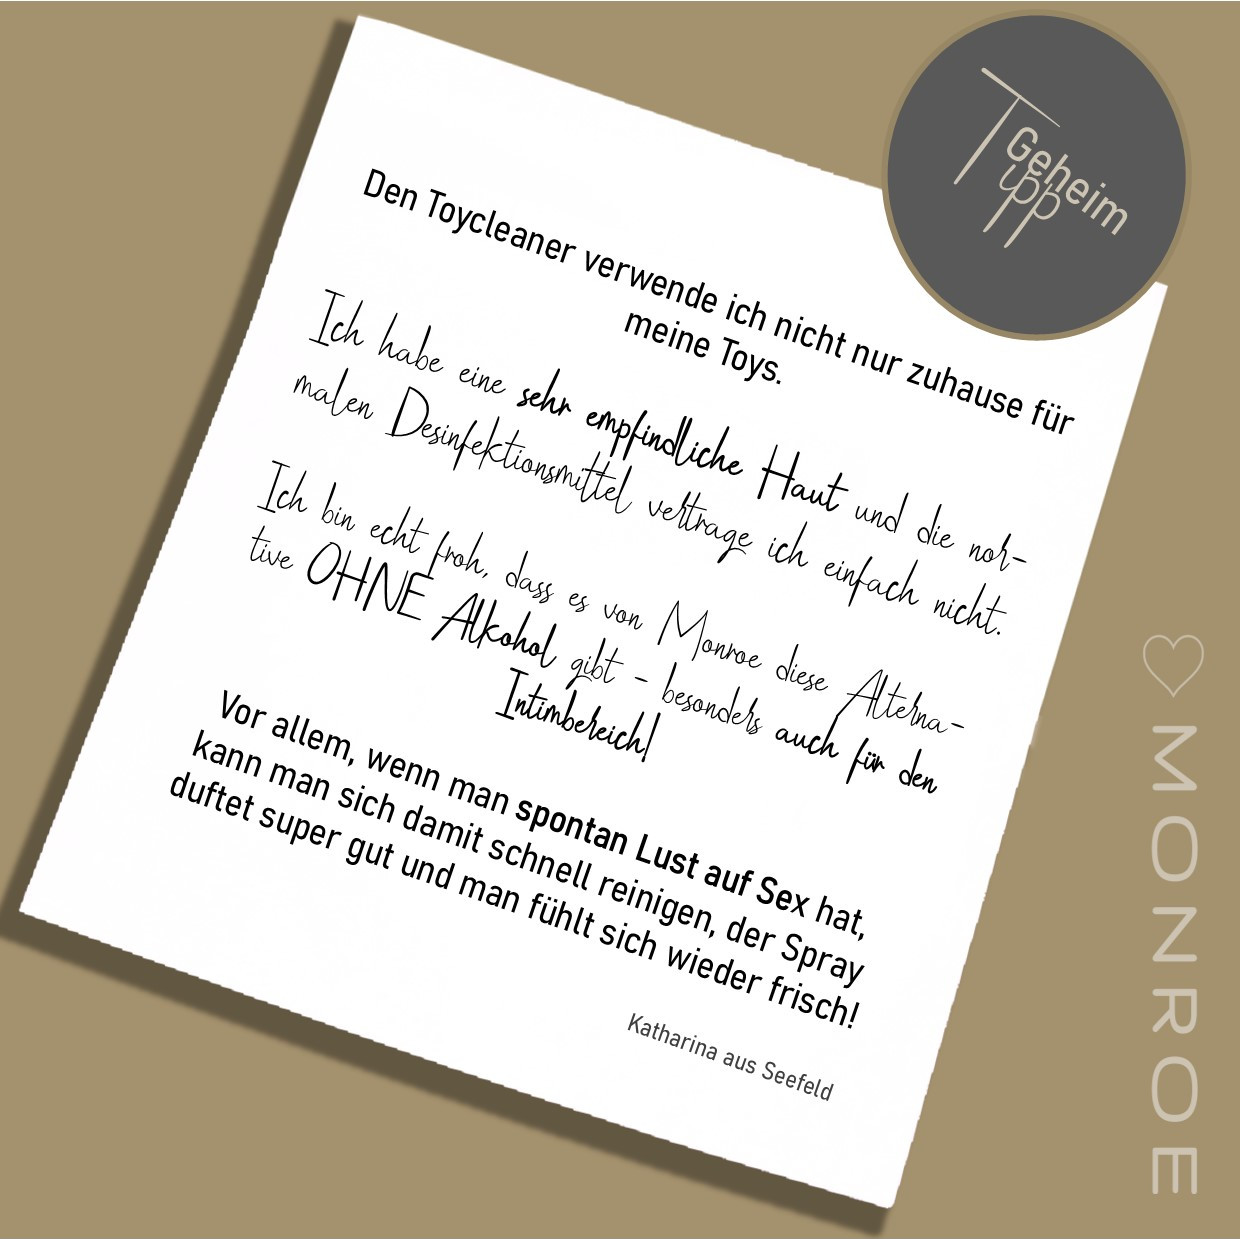 Geheim
Tipp
Den Toycleaner verwende ich nicht nur zuhause für
meine Toys.
Ich habe eine sehr empfindliche Haut und die nor-
malen Desinfektionsmittel vertrage ich einfach nicht.
Ich bin echt froh, dass es von Monroe diese Alterna-
tive OHNE Alkohol gibt - besonders auch für den
Intimbereich!
Vor allem, wenn man spontan Lust auf Sex hat,
kann man sich damit schnell reinigen, der Spray
duftet super gut und man fühlt sich wieder frisch!
Katharina aus Seefeld
MONROE